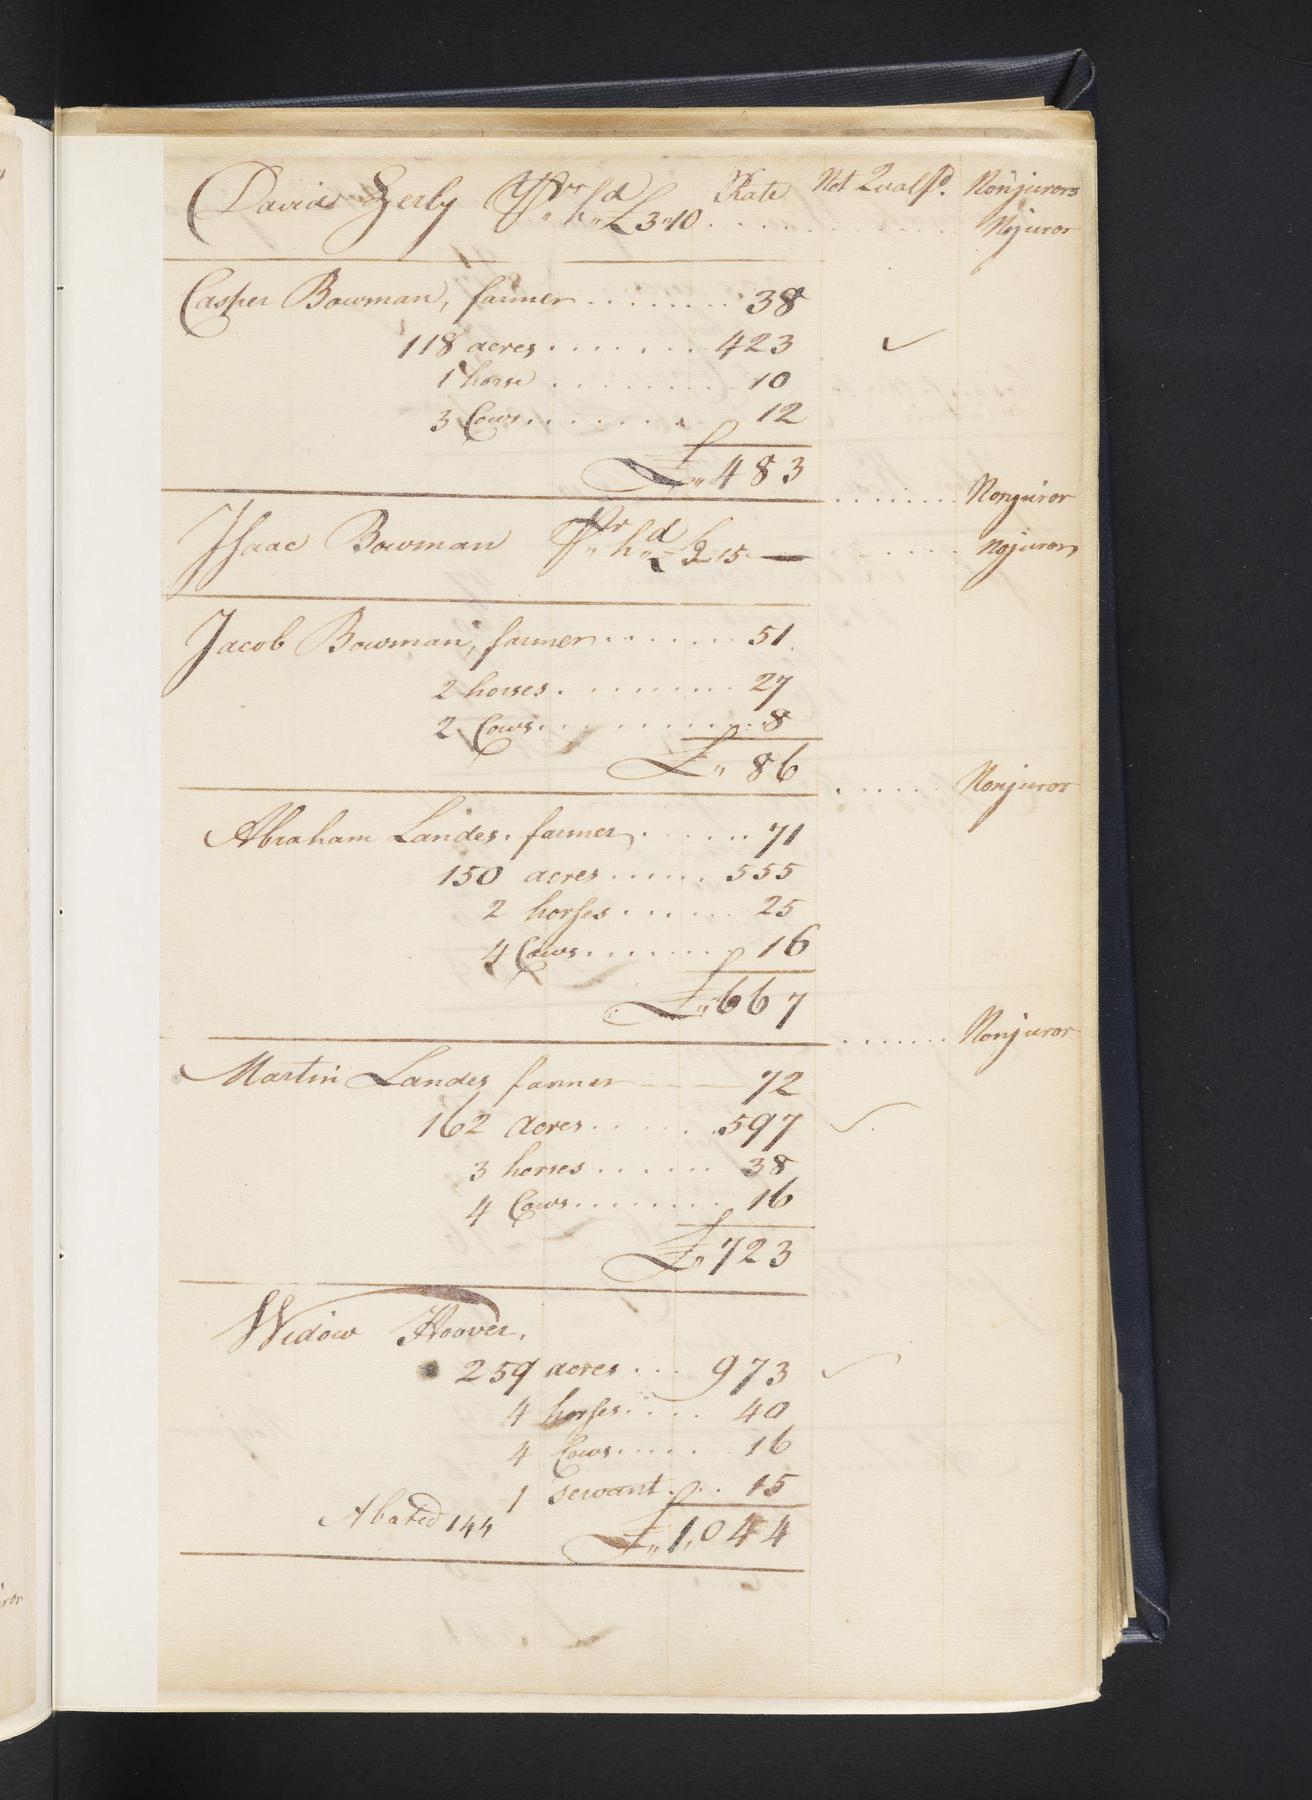 David Zerby Pr hd Rate Not Qualfd. Nonjurors
£3"10 . . . . . . . . . . . Nojuror
Casper Bowman, farmer . . . . . . . . 38
118 acres . . . . . . . 423 ✓
1 horse . . . . . . . . 10
3 Cows . . . . . . . 12
£ " 483
. . . . . . . Nonjuror
Isaac Bowman Pr " hd £2 15 — . . . . Nojurors
Jacob Bowman, farmer . . . . . . . 51
2 horses . . . . . . . . . 27
2 Cows . . . . . . . . . . 8
£ " 86
. . . . . . Nonjuror
Abraham Landes. farmer . . . . . . 71
150 acres . . . . . . 555
2 horses . . . . . . 25
4 Cows . . . . . . . 16
£ " 667
. . . . . . . Nonjuror
Martin Landes farmer — — 72
162 Acres . . . . . . 597 ✓
3 horses . . . . . . 38
4 Cows . . . . . . . . 16
£ " 723
Widow Hoover,
259 acres . . . 973 ✓
4 horses . . . . 40
4 Cows . . . . . 16
1 servant . . . 15
Abated 144 £ " 1,044